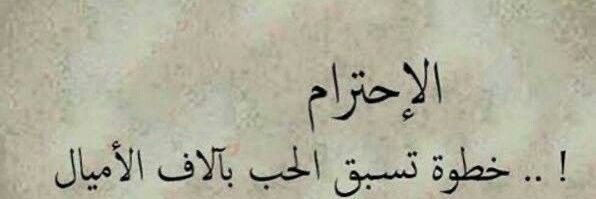 الإحترام
! .. خطوة تسبق الحب بآلاف الأميال